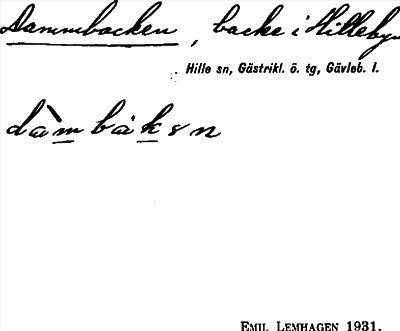 Dammbacken, backe i Hilleby
Hille sn, Gästrikl. ö. tg, Gävleb. l.
dàmbáksn
EMIL LEMHAGEN 1931.